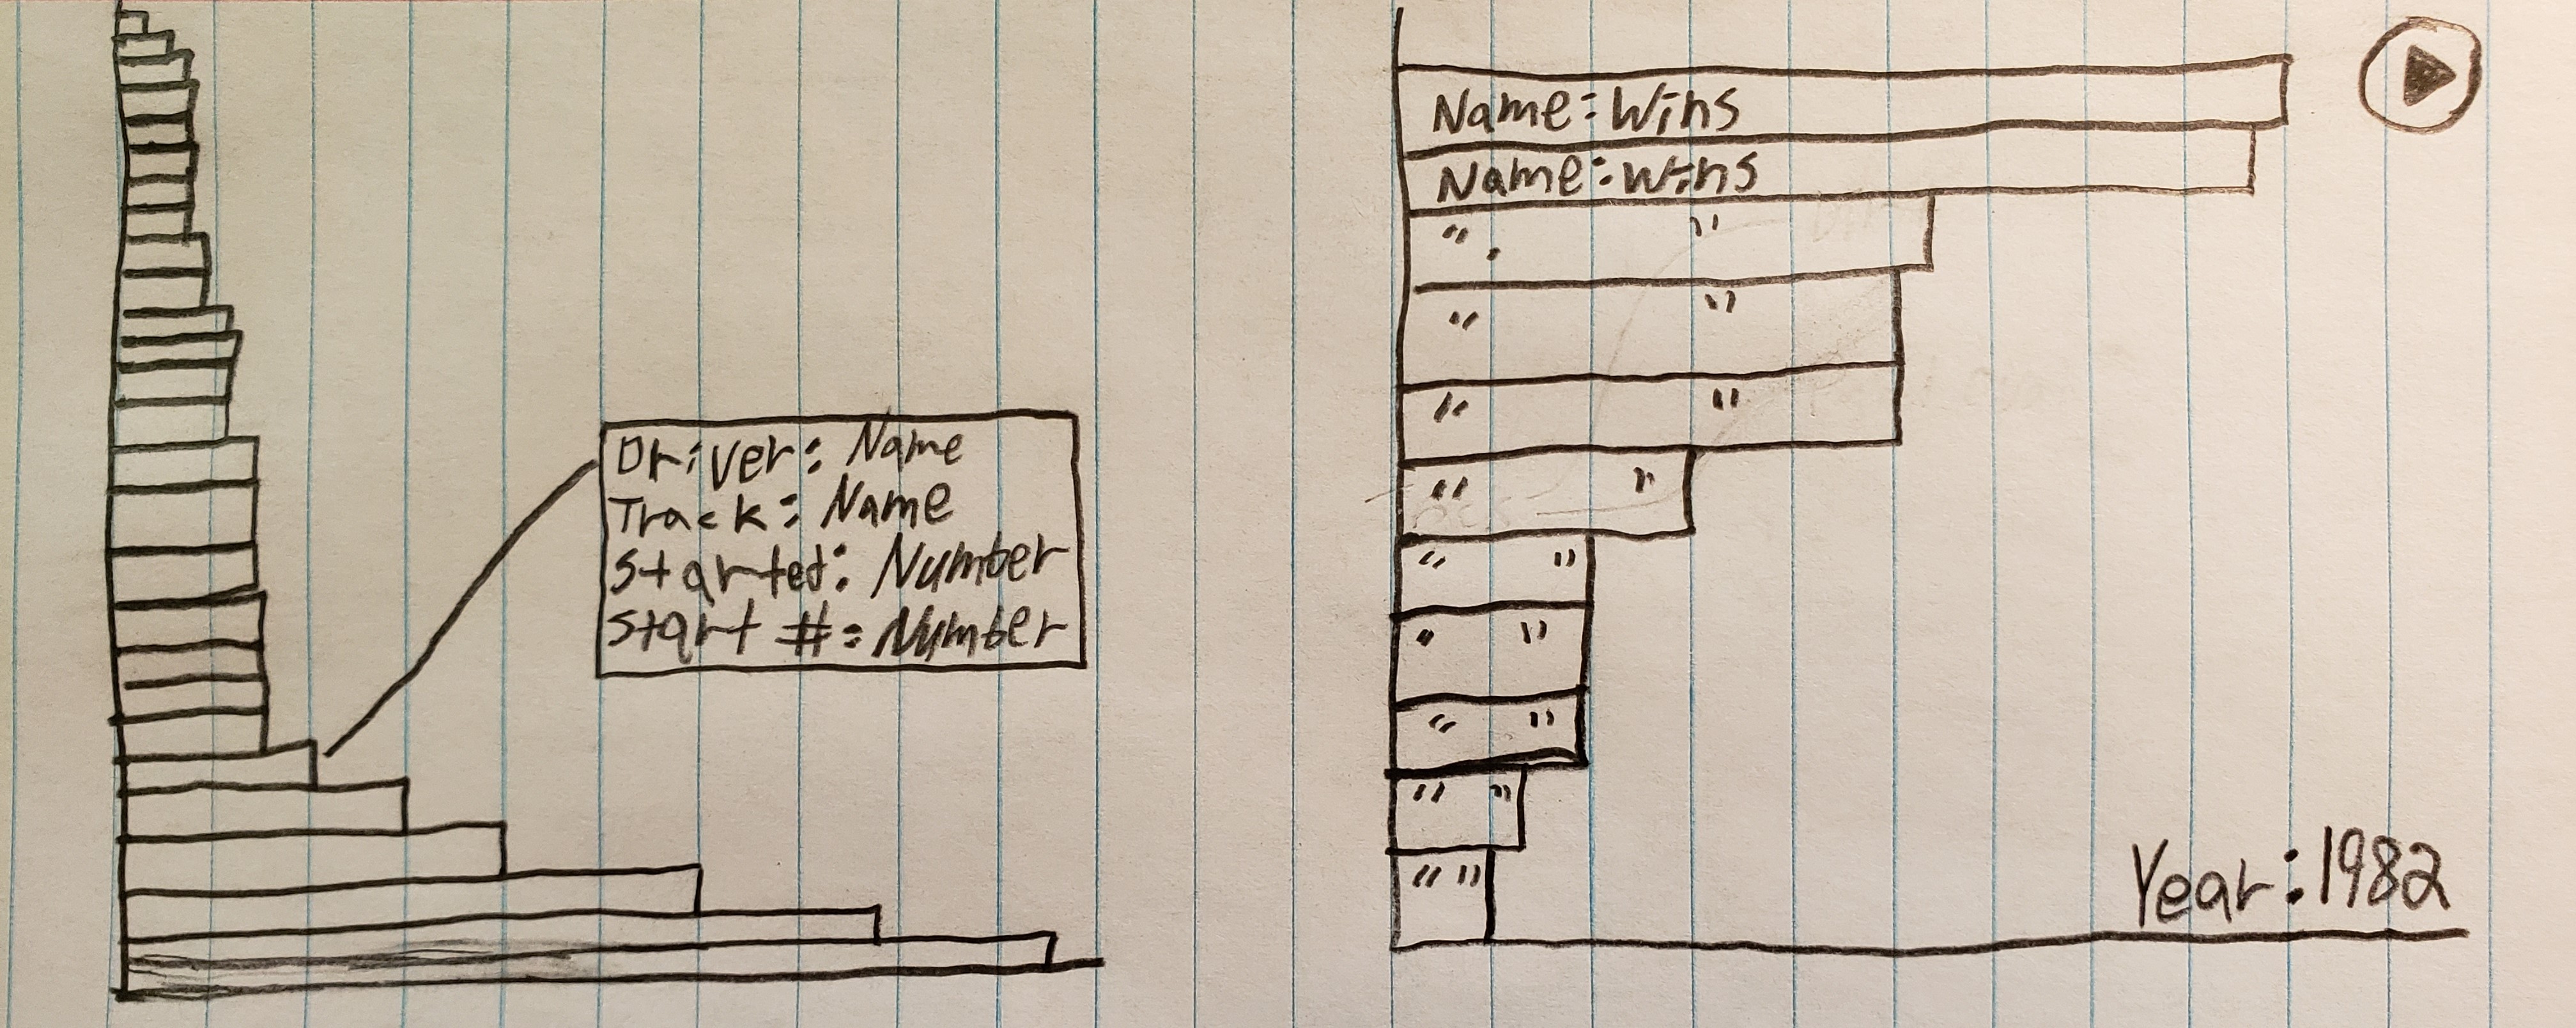 Driver: Name
Track: Name
Started: Number
Start #: Number
Name: Wins
Name: Wins
" "
" "
" "
" "
" "
" "
" "
" "
" "
Year: 1982